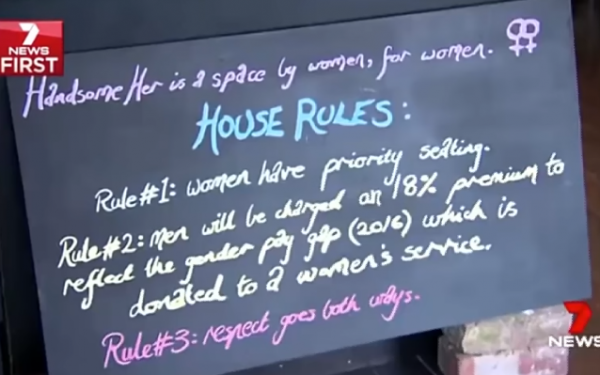 7
NEWS
FIRST
Handsome Her is a space by women, for women.
HOUSE RULES:
Rule#1: women have priority seating.
Rule#2: men will be charged an 18% premium to
reflect the gender pay gap (2016) which is
donated to a women's service.
Rule#3: respect goes both ways.
7
NEWS